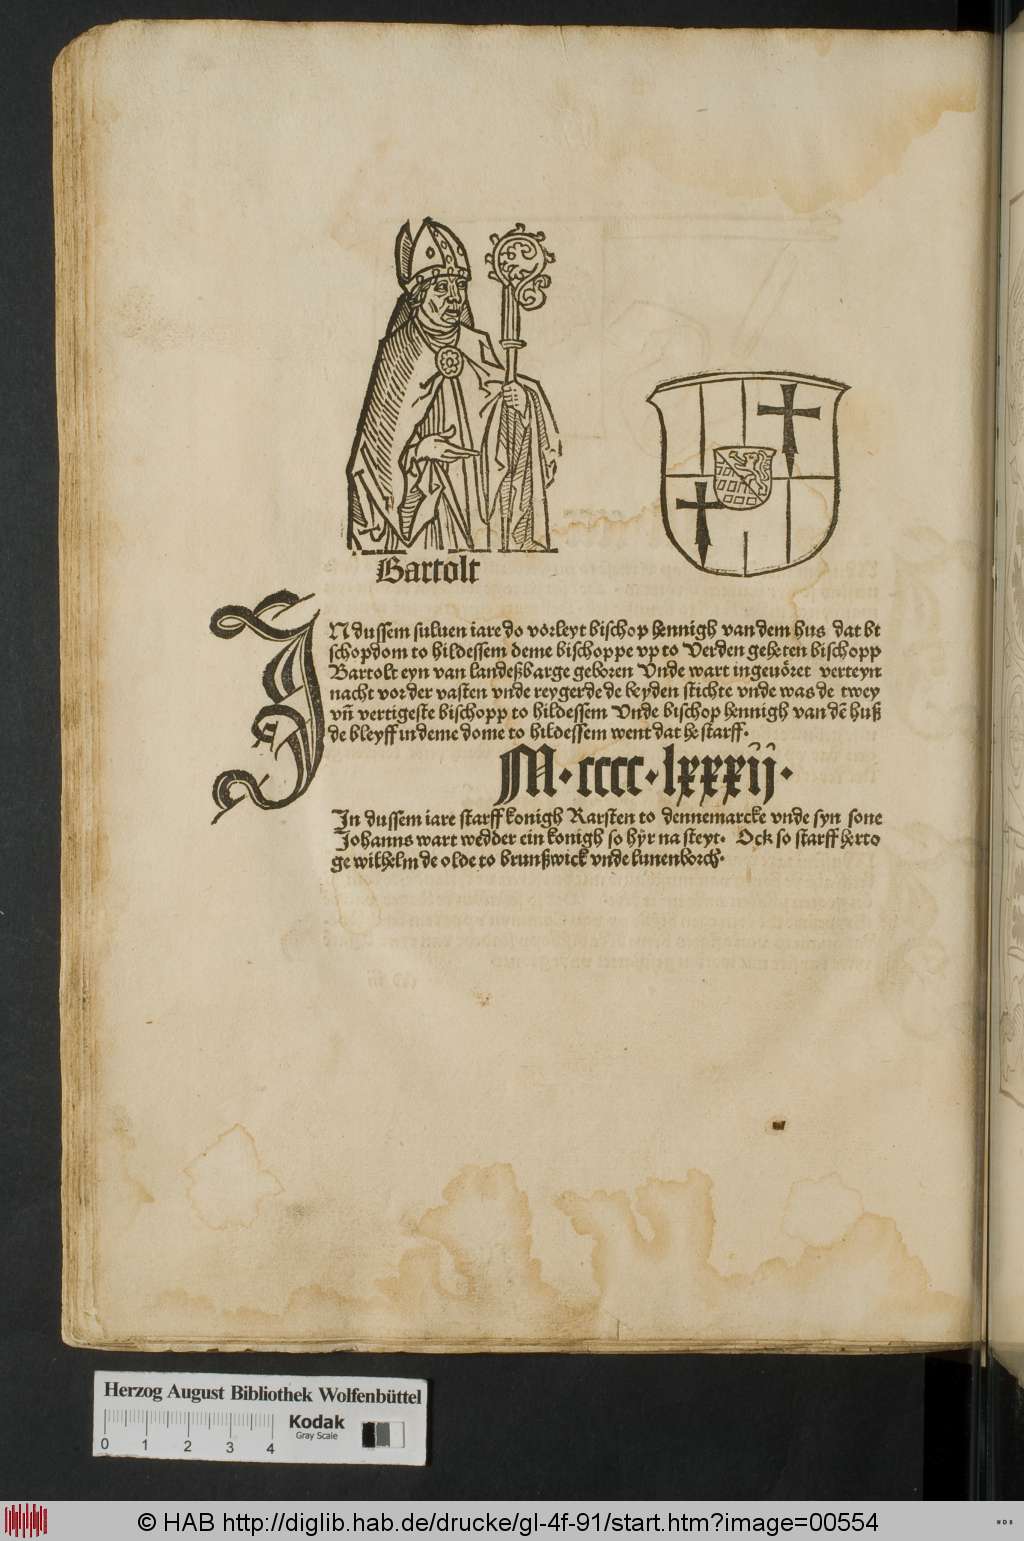 Bartolt
IN dussem suluen iare do vorleyt bischop hennigh van dem hus dat bi
schopdom to hildessem deme bischoppe vp to Verden geheten bischopp
Bartolt eyn van landeßbarge geboren Vnde wart ingeuöret verteyn
nacht vor der vasten vnde reygerde de beyden stichte vnde was de twey
vn̄ vertigeste bischopp to hildessem Vnde bischop hennigh van dē huß
de bleyff in deme dome to hildessem went dat he starff.
M.cccc.lxxxij.
In dussem iare starff konigh Karsten to dennemarcke vnde syn sone
Johanns wart wedder ein konigh so hÿr na steyt. Ock so starff herto
ge wilhelm de olde to brunßwick vnde lunenborch.
Herzog August Bibliothek Wolfenbüttel
Kodak
Gray Scale
0 1 2 3 4
© HAB http://diglib.hab.de/drucke/gl-4f-91/start.htm?image=00554
WDB